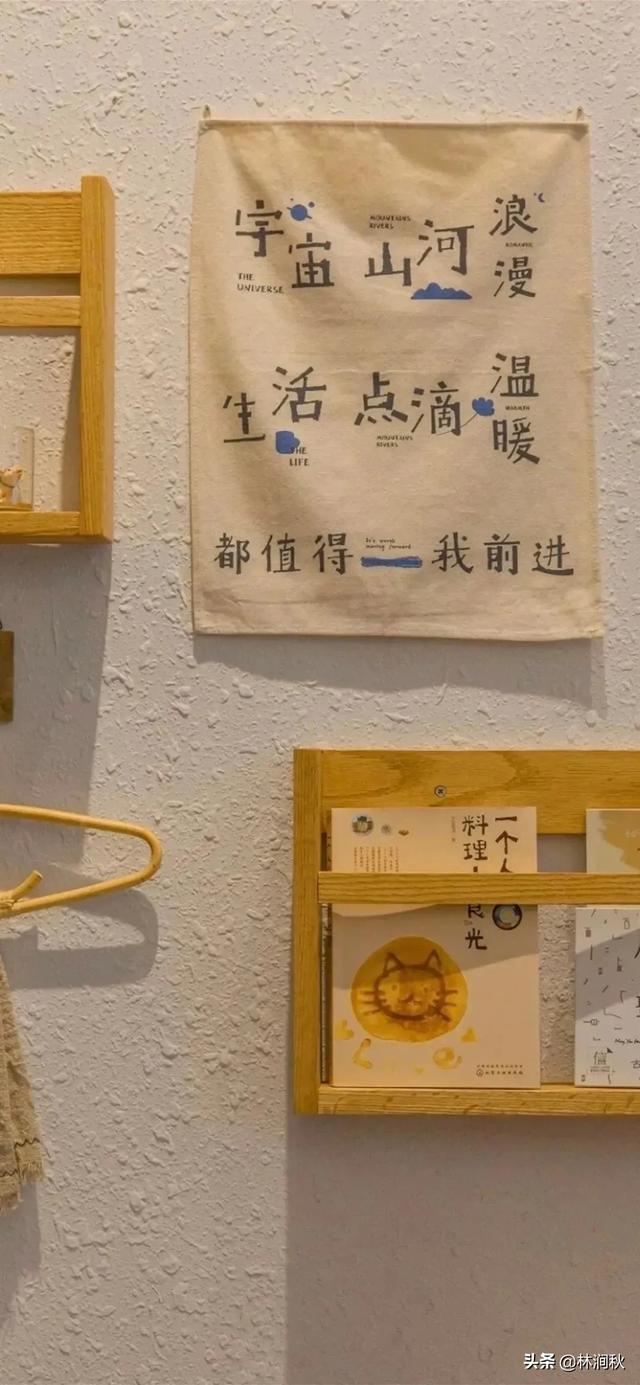 宇宙 山河 浪漫
THE UNIVERSE
MOUNTAINS RIVERS
ROMANTIC
生活 点滴 温暖
THE LIFE
MOUNTAINS RIVERS
WARMTH
都值得 我前进
It's worth
moving forward
一个人
料理 食光
头条 @林涧秋